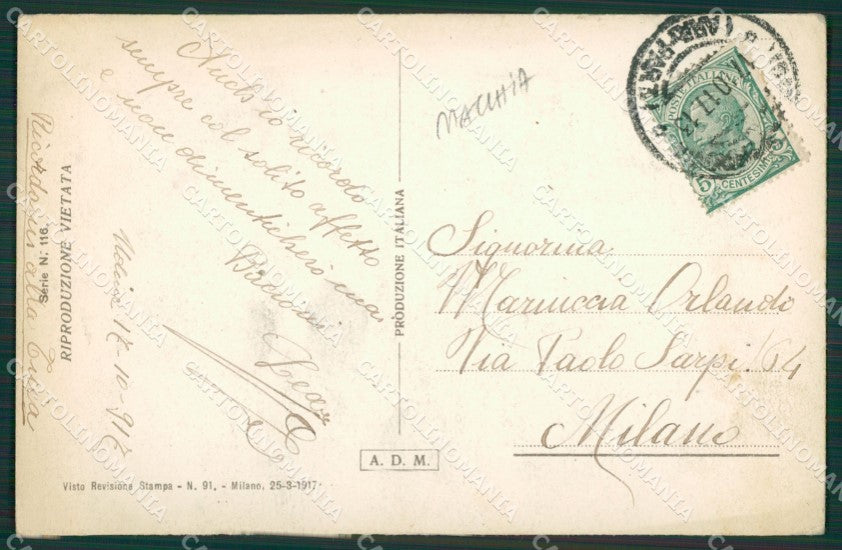 Anch'io ricordo
sempre col solito affetto
e non dimenticherò mai
Bacioni
Ricordami alla Tina
17-10-917
Serie N. 116.
RIPRODUZIONE VIETATA
PRODUZIONE ITALIANA
A. D. M.
Visto Revisione Stampa - N. 91. - Milano, 25-3-1917.
MACCHIA
POSTE ITALIANE
5 CENTESIMI 5
Signorina
Mariuccia Orlando
Via Paolo Sarpi. 64
Milano
CARTOLINOMANIA